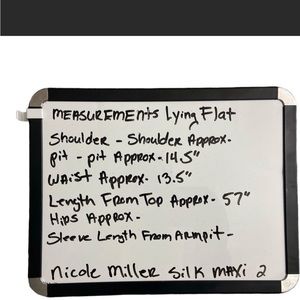 MEASUREMENTS Lying Flat
Shoulder - Shoulder Approx-
pit - pit Approx - 14.5"
Waist Approx - 13.5"
Length From Top Approx - 57"
Hips Approx -
Sleeve Length From Armpit -
Nicole Miller Silk Maxi 2